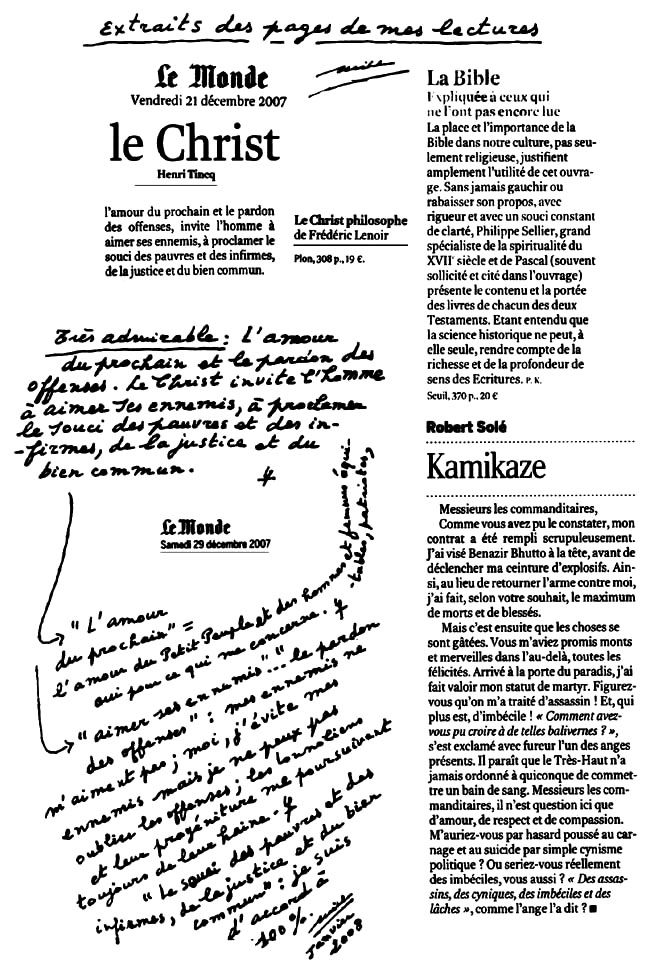 Extraits des pages de mes lectures
Le Monde
Vendredi 21 décembre 2007
suite
le Christ
Henri Tincq
l'amour du prochain et le pardon
des offenses, invite l'homme à
aimer ses ennemis, à proclamer le
souci des pauvres et des infirmes,
de la justice et du bien commun.
Le Christ philosophe
de Frédéric Lenoir
Plon, 308 p., 19 €.
Très admirable : L'amour
du prochain et le pardon des
offenses. Le Christ invite l'homme
à aimer ses ennemis, à proclamer
le souci des pauvres et des in-
-firmes, de la justice et du
bien commun.
Le Monde
Samedi 29 décembre 2007
"L'amour
du prochain" =
l'amour du Petit Peuple et des hommes et femmes équi-
-tables, patriotes,
oui pour ce qui me concerne.
"aimer ses ennemis" "... le pardon
des offenses" : mes ennemis ne
m'aiment pas ; moi, j'évite mes
ennemis mais je ne peux pas
oublier les offenses ; les
et leur progéniture me poursuivent
toujours de leur haine.
"Le souci des pauvres et des
infirmes, de la justice et du bien
commun" : je suis
d'accord à
100 %.
suite
janvier
2008
La Bible
Expliquée à ceux qui
ne l'ont pas encore lue
La place et l'importance de la
Bible dans notre culture, pas seu-
lement religieuse, justifient
amplement l'utilité de cet ouvra-
ge. Sans jamais gauchir ou
rabaisser son propos, avec
rigueur et avec un souci constant
de clarté, Philippe Sellier, grand
spécialiste de la spiritualité du
XVIIe siècle et de Pascal (souvent
sollicité et cité dans l'ouvrage)
présente le contenu et la portée
des livres de chacun des deux
Testaments. Etant entendu que
la science historique ne peut, à
elle seule, rendre compte de la
richesse et de la profondeur de
sens des Ecritures. P. K.
Seuil, 370 p., 20 €
Robert Solé
Kamikaze
Messieurs les commanditaires,
Comme vous avez pu le constater, mon
contrat a été rempli scrupuleusement.
J'ai visé Benazir Bhutto à la tête, avant de
déclencher ma ceinture d'explosifs. Ain-
si, au lieu de retourner l'arme contre moi,
j'ai fait, selon votre souhait, le maximum
de morts et de blessés.
Mais c'est ensuite que les choses se
sont gâtées. Vous m'aviez promis monts
et merveilles dans l'au-delà, toutes les
félicités. Arrivé à la porte du paradis, j'ai
fait valoir mon statut de martyr. Figurez-
vous qu'on m'a traité d'assassin ! Et, qui
plus est, d'imbécile ! « Comment avez-
vous pu croire à de telles balivernes ? »,
s'est exclamé avec fureur l'un des anges
présents. Il paraît que le Très-Haut n'a
jamais ordonné à quiconque de commet-
tre un bain de sang. Messieurs les com-
manditaires, il n'est question ici que
d'amour, de respect et de compassion.
M'auriez-vous par hasard poussé au car-
nage et au suicide par simple cynisme
politique ? Ou seriez-vous réellement
des imbéciles, vous aussi ? « Des assas-
sins, des cyniques, des imbéciles et des
lâches », comme l'ange l'a dit ? ■